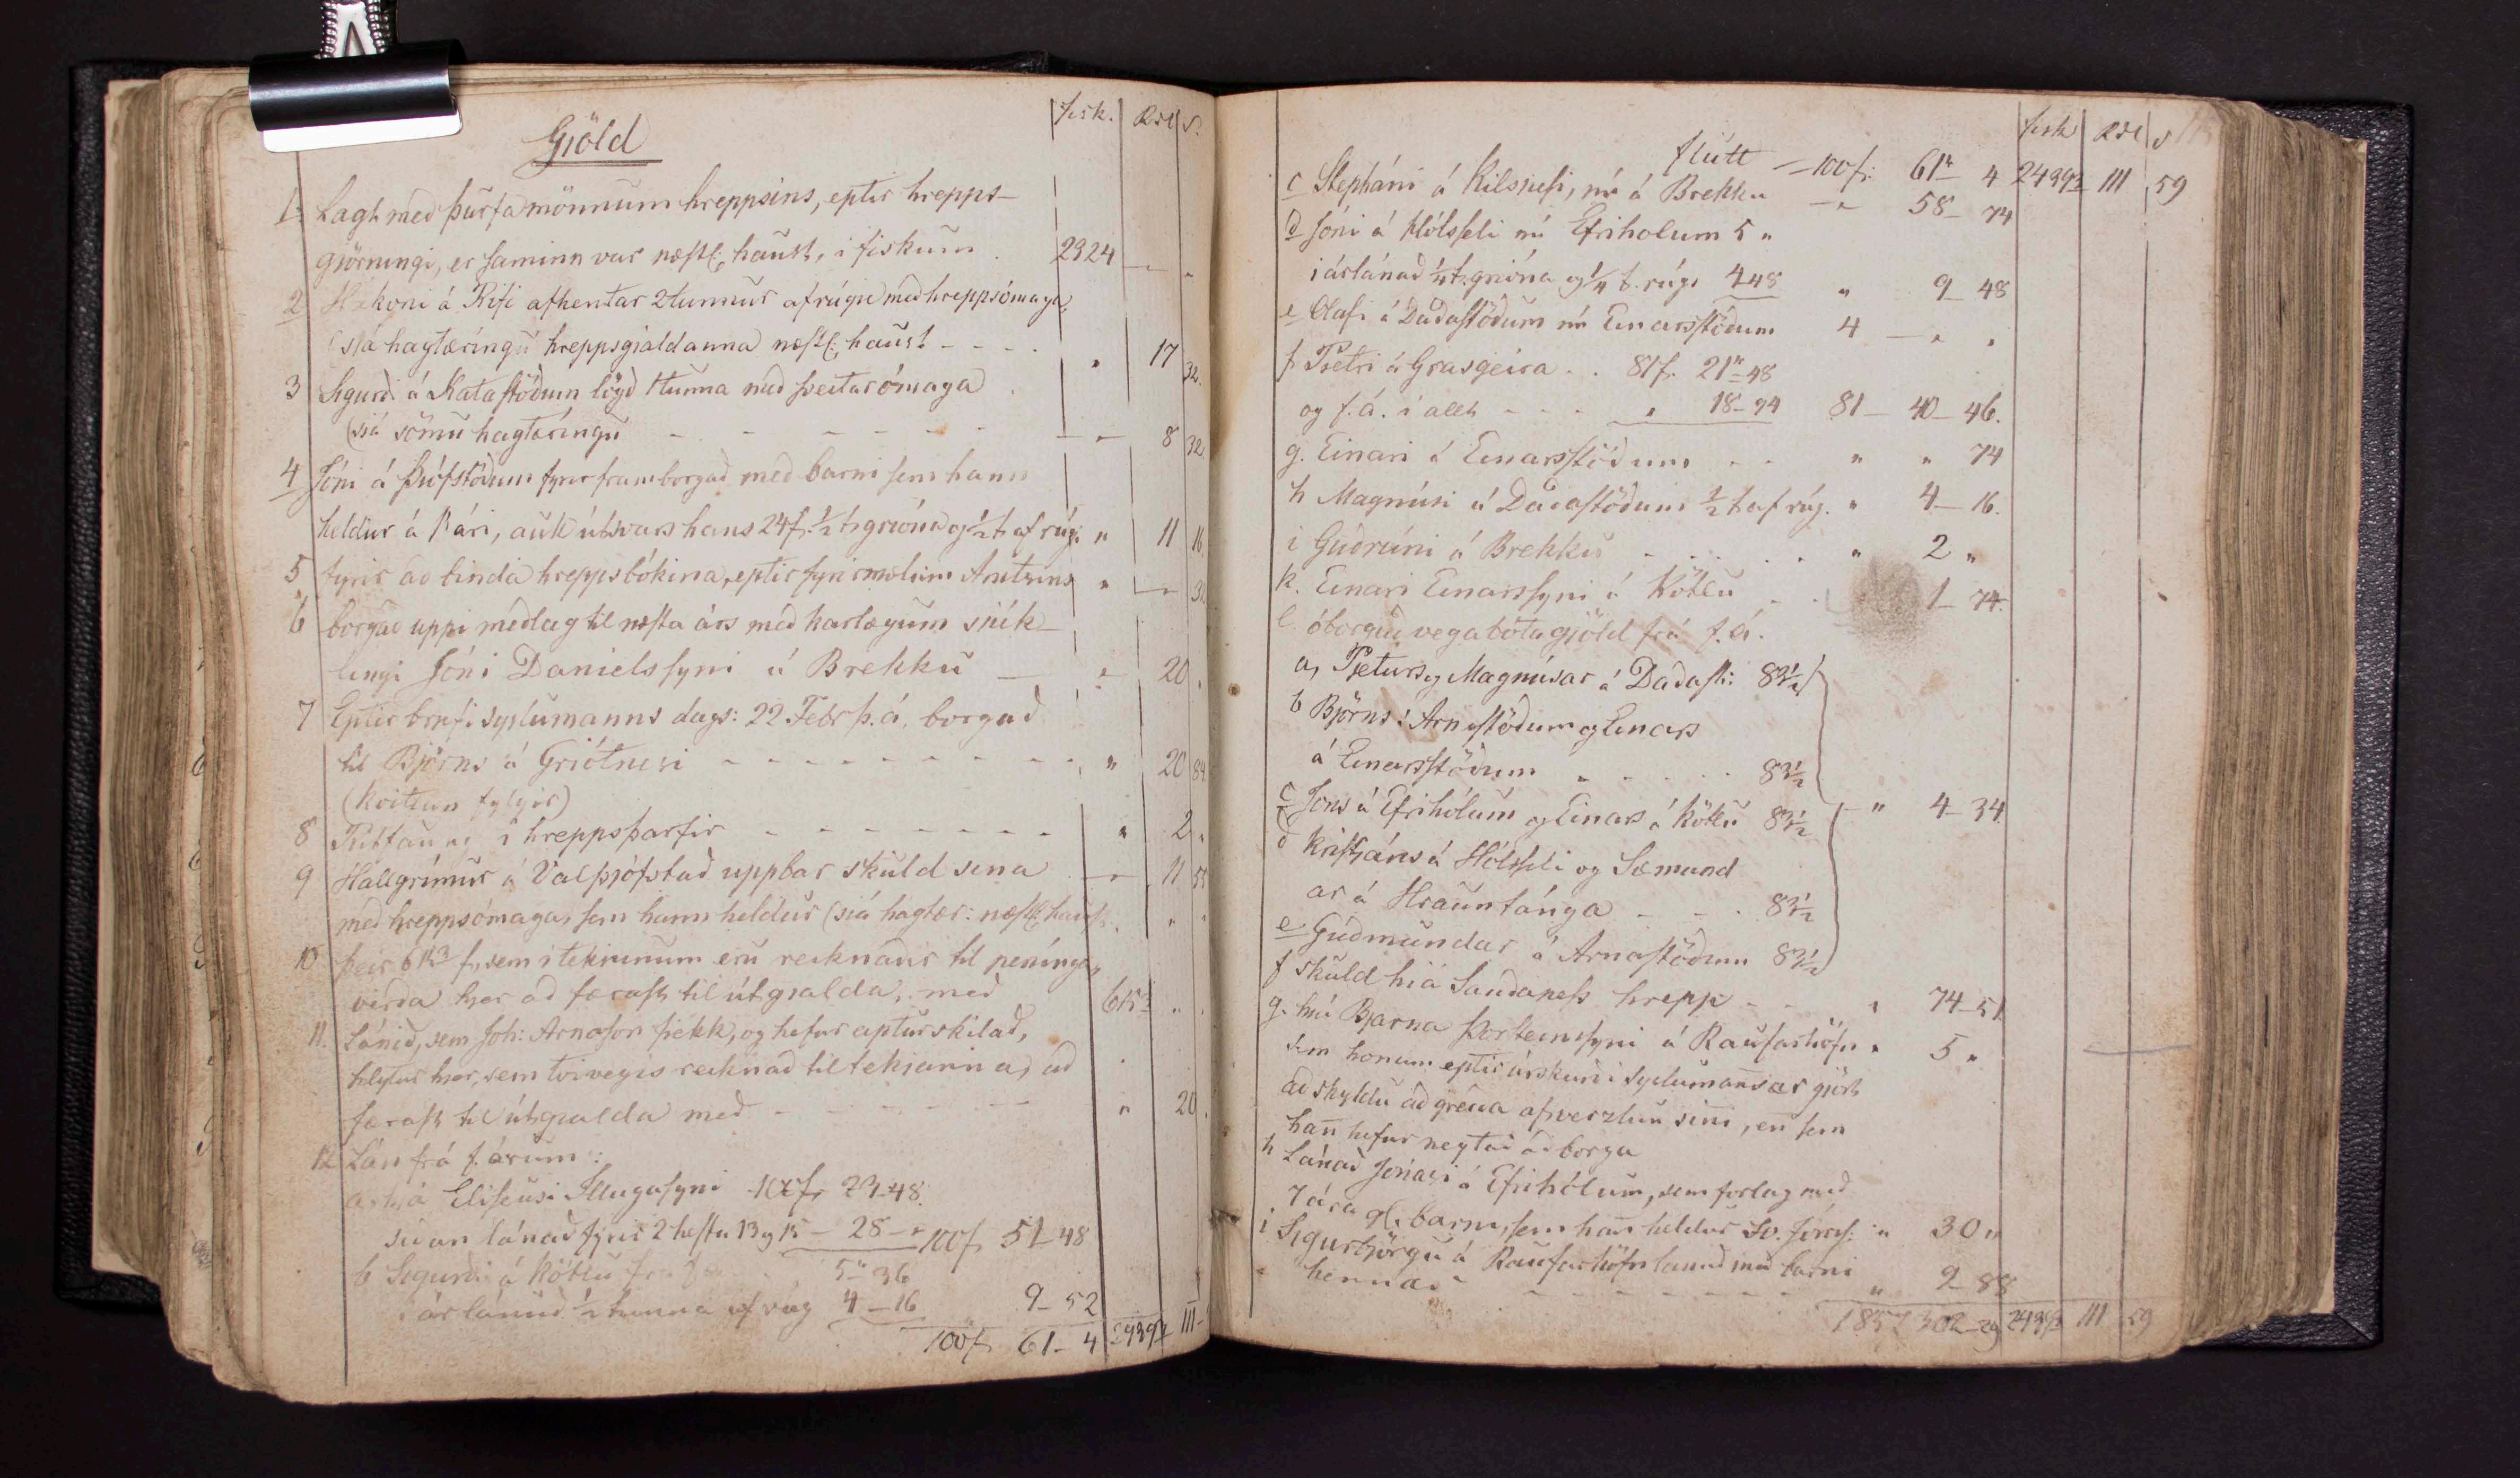 fisk. Rdl s.
Gjöld
1. Lagt með þurfamönnum hreppsins, eptir hrepps-
gjörningi, er saminn var næstl: haust, i fiskum 2324 — "
2 Hákoni á Rifi afhentar 2 tunnur af rúgi með hreppsómaga,
(sjá hagtæringu hreppsgjaldanna næstl: haust - - - " 17 32.
3 Sigurði á Katastöðum lögð 1 tunna með sveitarómaga
(sjá sömu hagtæríngu - - - - - - — 8 32
4 Jóni á Þjófstöðum fyrirframborgað með barni sem hann
heldur á 1 ári, auk útsvars hans 24f. ½ t. grjóna og ½ t. af rúgi " 11 16.
5 fyrir að binda hreppsbókina, eptir fyrirmælum Amtsins " —
6 borgað uppí meðlag til næsta árs með karlægum sjúk-
lingi Jóni Danielssyni á Brekku — " 20 .
7 Eptir brefi syslumanns dags: 22 Febr þ. á. borgað
til Björns á Grjótnesi - - - - - - - - " 20 84
(kvittun fylgir)
8 Ritfaung í hreppsþarfir - - - - - - - " 2 "
9 Hallgrímur á Valþjófstað uppbar skuld sína — 11 55
með hreppsómaga, sem hann heldur (sjá hagtær: næstl: haust " "
10 þeir f, sem í tekjunum eru reiknaðir til peninga,
verða hjer að færast til útgjalda, með
11. Lánið, sem Joh: Arnason fjekk, og hefur apturskilað,
hlytur hjer, sem tvívegis reiknað til tekjanna, að
færast til útgjalda með - - - - - - " 20.
12 Lán frá f. árum:
a, hjá Eliseusi Illugasyni 100f. 23-48.
síðan lánað fyrir 2 hestu 13 og 15 — 28 - " 100f 51-48
b Sigurði á Kötlu 5- 36
í ár lánuð ½ tunna af rúg 4-16 9-52
100f 61-4 2439½ 111-
fisk Rdl s
flutt — 100f: 61 4 2439½ 111 59
c Stepháni á Kilsnesi, nú á Brekku — " 58- 74
d Jóni á Hólsseli nú Efriholum 5 "
í ár lánað ¼ t. grjóna og ¼ t. rúgi 4 48 " 9-48
e Olafi á Daðastöðum nú Einarsstöðum 4 — " "
f Pjetri á Grasgeira . . 81f. 21-48
og f. á. í allt - - - " 18-94 81-40-46.
g. Einari á Einarsstöðum - - " " 74
h Magnúsi á Daðastöðum ½ t af rúg. " 4-16.
i Guðrúni á Brekku - . . . . " 2 "
k. Einari Einarssyni á Kötlu - . 1-74.
l. óborguð vegabótagjöld frá f. á.
a, Pjeturs og Magnúsar á Daðast: 83½
b Björns á Arnastöðum og Einars
á Einarsstöðum - . . . . 83½
c Jons á Efrihólum og Einars á Kötlu 83½ — " 4-34.
d Kristjáns á Hólsseli og Sæmund
ar á Hrauntánga - - . 83½
e Guðmundar á Arnastöðum 83½
f skuld hjá Sauðaness hrepp - - " 74-51
g. hjá Bjarna Þorsteinssyni á Raufarhöfn " 5 "
sem honum eptir úrskurði syslumanns er gjört
að skyldu að greiða af verzlun sinni, en sem
hann hefur neytað að borga
h Lánað Jónasi á Efrihólum, sem forlag með
7 ára gl. barni, sem hann heldur " 30 "
i Sigurbjörgu á Raufarhöfn lánað með barni
hennar - - - - - - - " 9-88
185f 302-29 2439½ 111 59